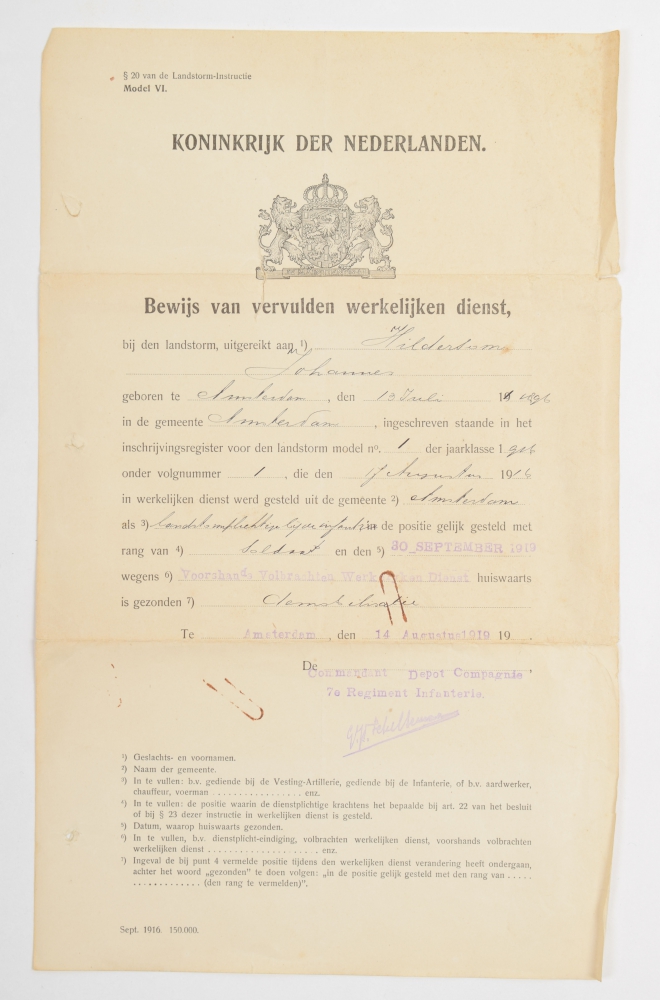 § 20 van de Landstorm-Instructie
Model VI.
KONINKRIJK DER NEDERLANDEN.
Bewijs van vervulden werkelijken dienst,
bij den landstorm, uitgereikt aan 1) Hildering
Johannes
geboren te Amsterdam, den 13 Juli 1896
in de gemeente Amsterdam, ingeschreven staande in het
inschrijvingsregister voor den landstorm model no. 1 der jaarklasse 1916
onder volgnummer 1, die den 17 Augustus 1916
in werkelijken dienst werd gesteld uit de gemeente 2) Amsterdam
als 3) landstormplichtige bij de infanterie in de positie gelijk gesteld met
rang van 4) Soldaat en den 5) 30 SEPTEMBER 1919
wegens 6) Voorshands Volbrachten Werkelijken Dienst huiswaarts
is gezonden 7)
Te Amsterdam, den 14 Augustus 1919 19 ,
De Commandant Depot Compagnie,
7e Regiment Infanterie.
1) Geslachts- en voornamen.
2) Naam der gemeente.
3) In te vullen: b.v. gediende bij de Vesting-Artillerie, gediende bij de Infanterie, of b.v. aardwerker,
chauffeur, voerman . . . . . . . . . . . . . . . . enz.
4) In te vullen: de positie waarin de dienstplichtige krachtens het bepaalde bij art. 22 van het besluit
of bij § 23 dezer instructie in werkelijken dienst is gesteld.
5) Datum, waarop huiswaarts gezonden.
6) In te vullen, b.v. dienstplicht-eindiging, volbrachten werkelijken dienst, voorshands volbrachten
werkelijken dienst . . . . . . . . . . . . . . . . . . . . enz.
7) Ingeval de bij punt 4 vermelde positie tijdens den werkelijken dienst verandering heeft ondergaan,
achter het woord „gezonden" te doen volgen: „in de positie gelijk gesteld met den rang van . . . . .
. . . . . . . . . . . . . . (den rang te vermelden)".
Sept. 1916. 150.000.